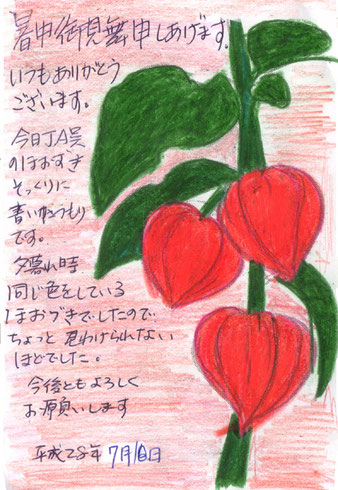 暑中御見舞申しあげます。
いつもありがとう
ございます。
今日JA呉
のほおずき
そっくりに
書いたつもり
です。
夕暮れ時
同じ色をしている
ほおづきでしたので
ちょっと 見わけられない
ほどでした。
今後ともよろしく
お願いします
平成28年 7月 日